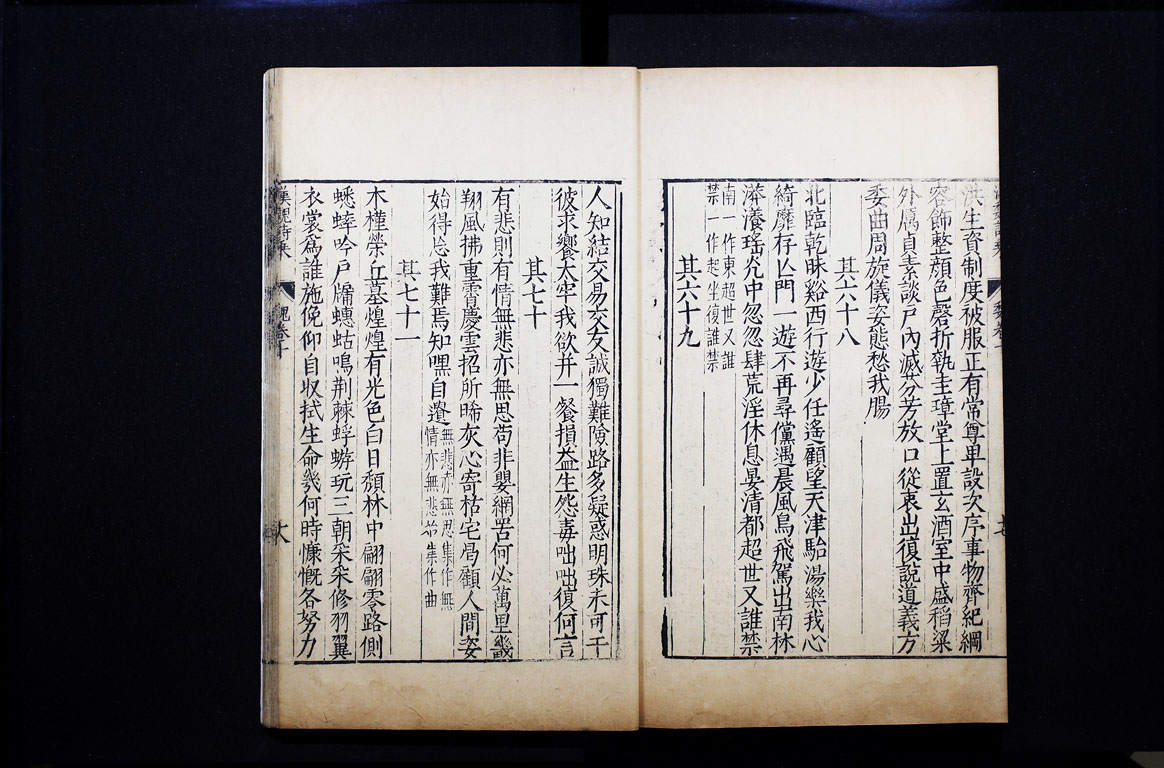 洪生資制度被服正有常尊卑設次序事物齊紀綱
容飾整顏色磬折執圭璋堂上置玄酒室中盛稻粱
外厲貞素談戶內滅芬芳放口從衷出復說道義方
委曲周旋儀姿態愁我腸
其六十八
北臨乾昧谿西行遊少任遙顧望天津駘湯樂我心
綺靡存亾門一遊不再尋儻遇晨風鳥飛駕出南林
漭瀁瑤光中忽忽肆荒淫休息晏清都超世又誰禁
南一作東超世又誰
禁一作起坐復誰禁
其六十九
人知結交易交友誠獨難險路多疑惑明珠未可干
彼求饗太牢我欲并一餐損益生怨毒咄咄復何言
其七十
有悲則有情無悲亦無思苟非嬰網罟何必萬里畿
翔風拂重霄慶雲招所晞灰心寄枯宅曷顧人間姿
始得忘我難焉知嘿自遺無悲亦無思集作無
情亦無悲希集作曲
其七十一
木槿榮丘墓煌煌有光色白日頹林中翩翩零路側
蟋蟀吟戶牖蟪蛄鳴荆棘蜉蝣玩三朝采采修羽翼
衣裳爲誰施俛仰自收拭生命幾何時慷慨各努力
漢魏詩乗
魏卷十